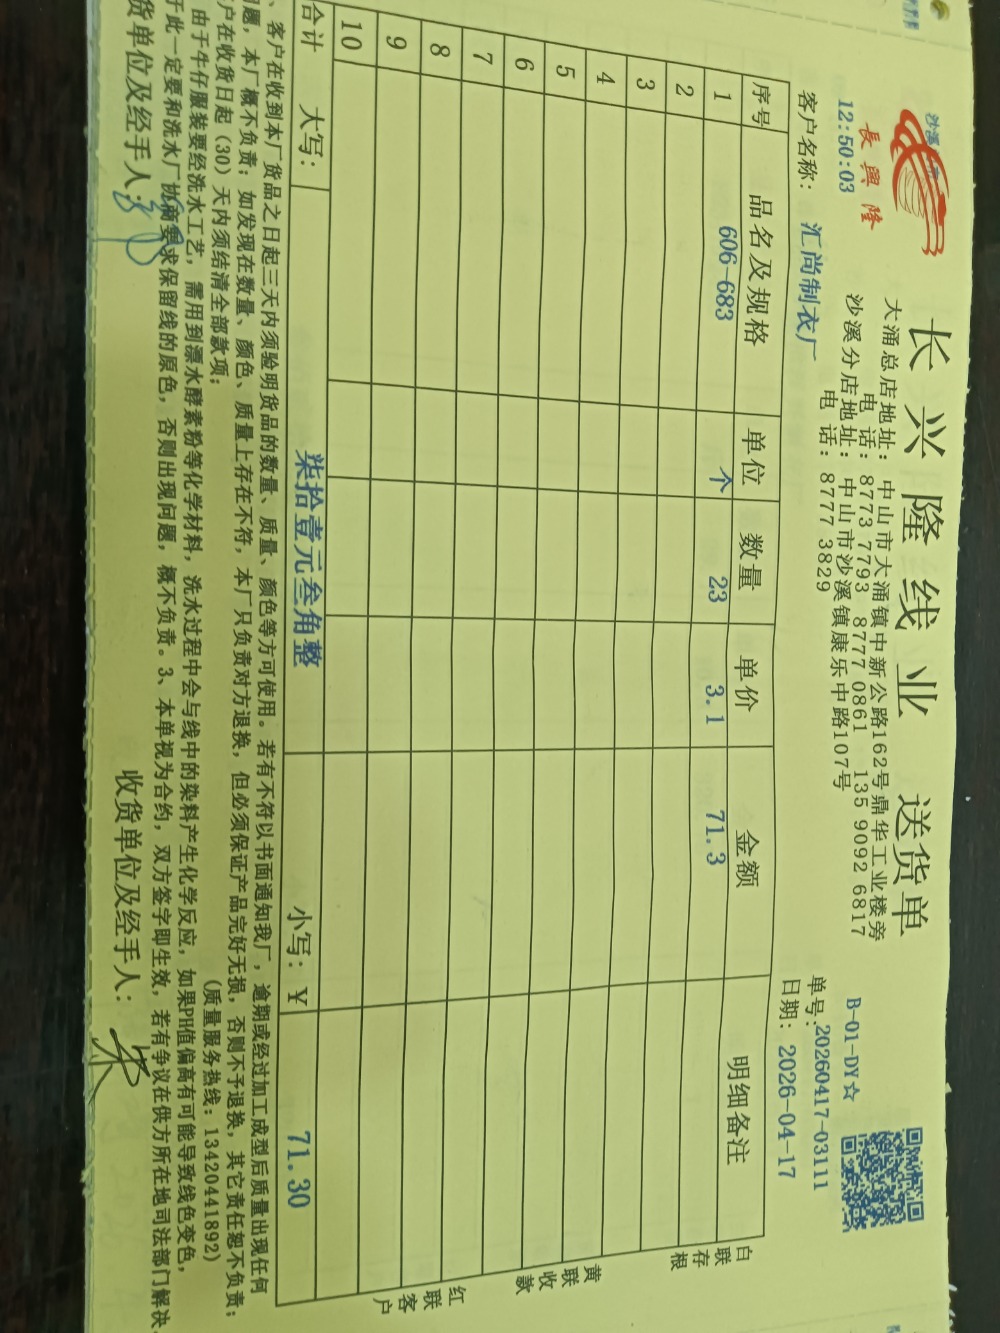 长兴隆线业 送货单
沙溪
長興隆
大涌总店地址：中山市大涌镇中新公路162号鼎华工业楼旁
电 话：8773 7793 8777 0861 135 9092 6817
沙溪分店地址：中山市沙溪镇康乐中路107号
电 话：8777 3829
12:50:03
B-01-DY☆
单号：20260417-03111
客户名称：汇尚制衣厂
日期：2026-04-17
序号 品名及规格 单位 数量 单价 金额 明细备注
1 606-683 个 23 3.1 71.3
2
3
4
5
6
7
8
9
10
合计 大写： 柒拾壹元叁角整 小写：￥ 71.30
白联存根
黄联收款
红联客户
、客户在收到本厂货品之日起三天内须验明货品的数量、质量、颜色等方可使用。若有不符以书面通知我厂，逾期或经过加工成型后质量出现任何
题，本厂概不负责；如发现在数量、颜色、质量上存在不符，本厂只负责对方退换，但必须保证产品完好无损，否则不予退换，其它责任恕不负责；
户在收货日起（30）天内须结清全部款项；
（质量服务热线：13420441892）
由于牛仔服装要经洗水工艺，需用到漂水酵素粉等化学材料，洗水过程中会与线中的染料产生化学反应，如果PH值偏高有可能导致线色变色，
于此一定要和洗水厂协商要求保留线的原色，否则出现问题，概不负责。3、本单视为合约，双方签字即生效，若有争议在供方所在地司法部门解决。
货单位及经手人：
收货单位及经手人：